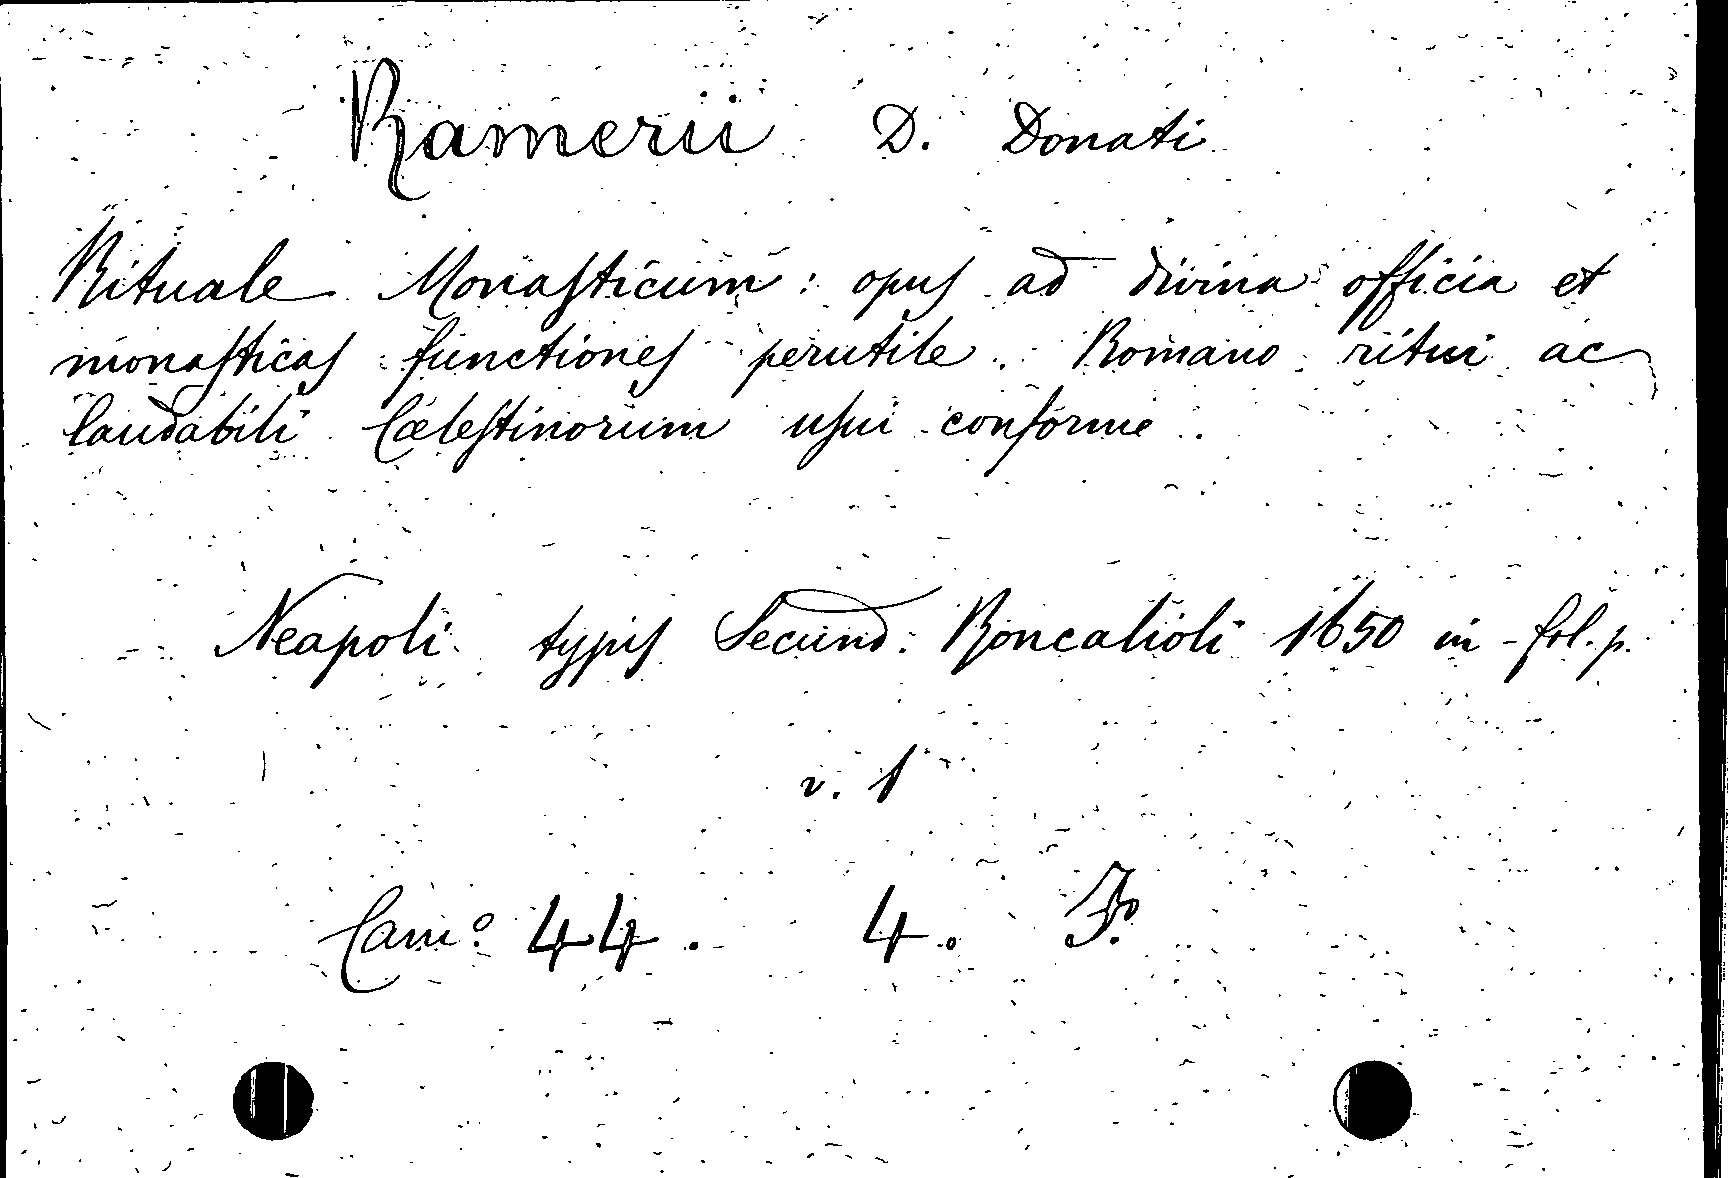 Ramerii D. Donati
Rituale Monasticum: opus ad divina officia et
monasticas functiones perutile. Romano ritui ac
laudabili Cælestinorum usui conforme.
Neapoli typis Secund: Roncalioli 1650 in-fol. p.
v. 1
Cam.º 44. 4.